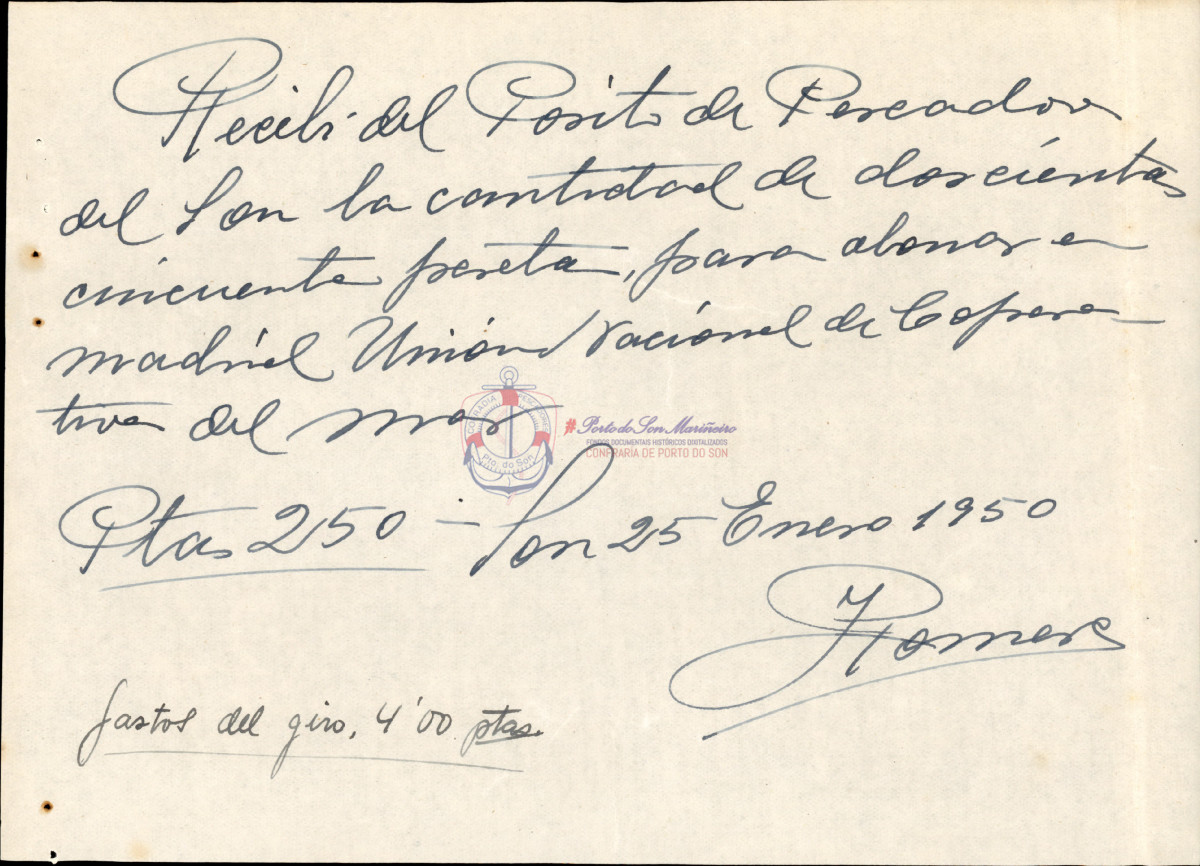 Recibí del Posito de Pescador
del Son la cantidad de doscientas
cincuenta peseta, para abonar en
madrid Unión Nacional de Copera-
tiva del mar
COFRADIA PESCADORES
Pto. do Son
#Porto do Son Mariñeiro
FONDOS DOCUMENTAIS HISTÓRICOS DIXITALIZADOS
CONFRARÍA DE PORTO DO SON
Ptas 250 — Son 25 Enero 1950
Romero
gastos del giro, 4'00 ptas.